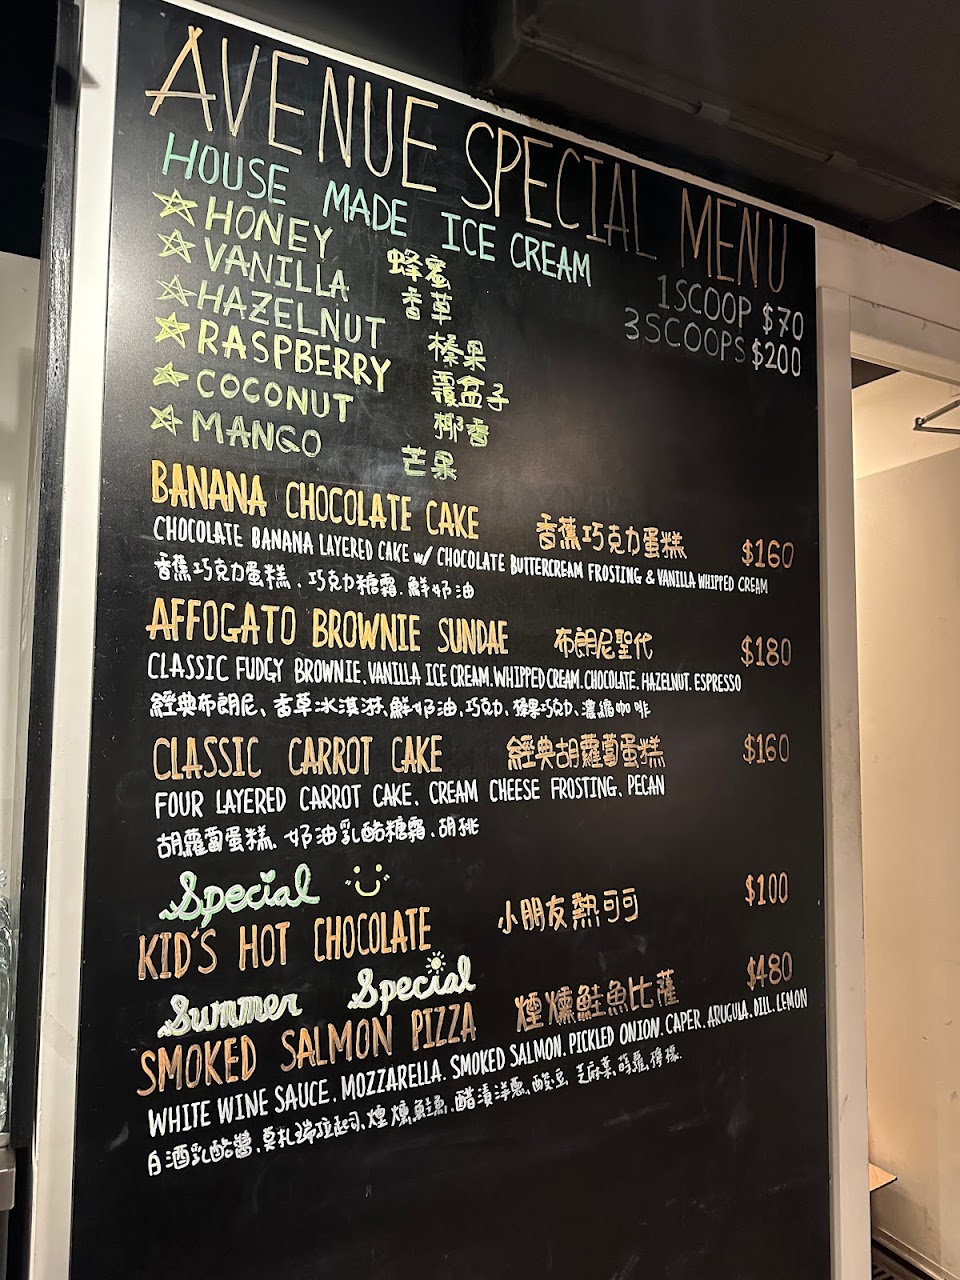 AVENUE SPECIAL MENU
HOUSE MADE ICE CREAM
1 SCOOP $70
3 SCOOPS $200
☆ HONEY 蜂蜜
☆ VANILLA 香草
☆ HAZELNUT 榛果
☆ RASPBERRY 覆盆子
☆ COCONUT 椰香
☆ MANGO 芒果
BANANA CHOCOLATE CAKE 香蕉巧克力蛋糕 $160
CHOCOLATE BANANA LAYERED CAKE w/ CHOCOLATE BUTTERCREAM FROSTING & VANILLA WHIPPED CREAM
香蕉巧克力蛋糕、巧克力糖霜、鮮奶油
AFFOGATO BROWNIE SUNDAE 布朗尼聖代 $180
CLASSIC FUDGY BROWNIE, VANILLA ICE CREAM, WHIPPED CREAM, CHOCOLATE, HAZELNUT, ESPRESSO
經典布朗尼、香草冰淇淋、鮮奶油、巧克力、榛果巧克力、濃縮咖啡
CLASSIC CARROT CAKE 經典胡蘿蔔蛋糕 $160
FOUR LAYERED CARROT CAKE, CREAM CHEESE FROSTING, PECAN
胡蘿蔔蛋糕、奶油乳酪糖霜、胡桃
Special
KID'S HOT CHOCOLATE 小朋友熱可可 $100
Summer Special
SMOKED SALMON PIZZA 煙燻鮭魚比薩 $480
WHITE WINE SAUCE, MOZZARELLA, SMOKED SALMON, PICKLED ONION, CAPER, ARUGULA, DILL, LEMON
白酒乳酪醬、莫札瑞拉起司、煙燻鮭魚、醋漬洋蔥、酸豆、芝麻菜、蒔蘿、檸檬